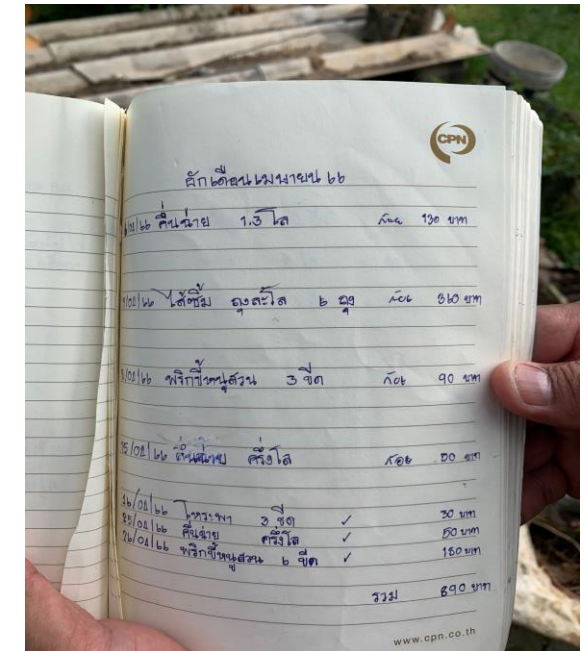 CPN
ผักเดือนเมษายน ๖๖
/๐๔/๖๖ คื่นฉ่าย 1.3 โล 130 บาท
/๐๔/๖๖ ไส้ซิ้ม ถุงละโล ๖ ถุง 360 บาท
/๐๔/๖๖ พริกขี้หนูสวน 3 ขีด 90 บาท
15/๐๔/๖๖ คื่นฉ่าย ครึ่งโล 50 บาท
/๐๔/๖๖ โหระพา 3 ขีด ✓ 30 บาท
25/๐๔/๖๖ คื่นฉ่าย ครึ่งโล ✓ 50 บาท
26/๐๔/๖๖ พริกขี้หนูสวน ๖ ขีด ✓ 180 บาท
รวม 890 บาท
www.cpn.co.th